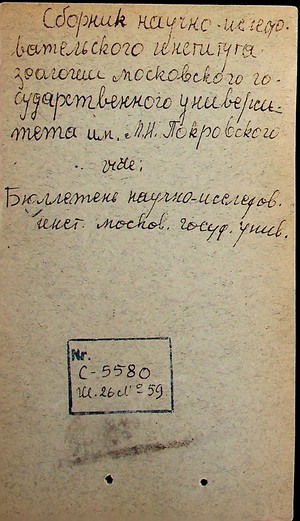 Сборник научно-исследо-
вательского института
зоологии московского го-
сударственного универси-
тета им. М.Н. Покровского
vide:
Бюллетень научно-исследов.
инст. москов. госуд. унив.
Nr.
С-5580
Ш. 26 № 59